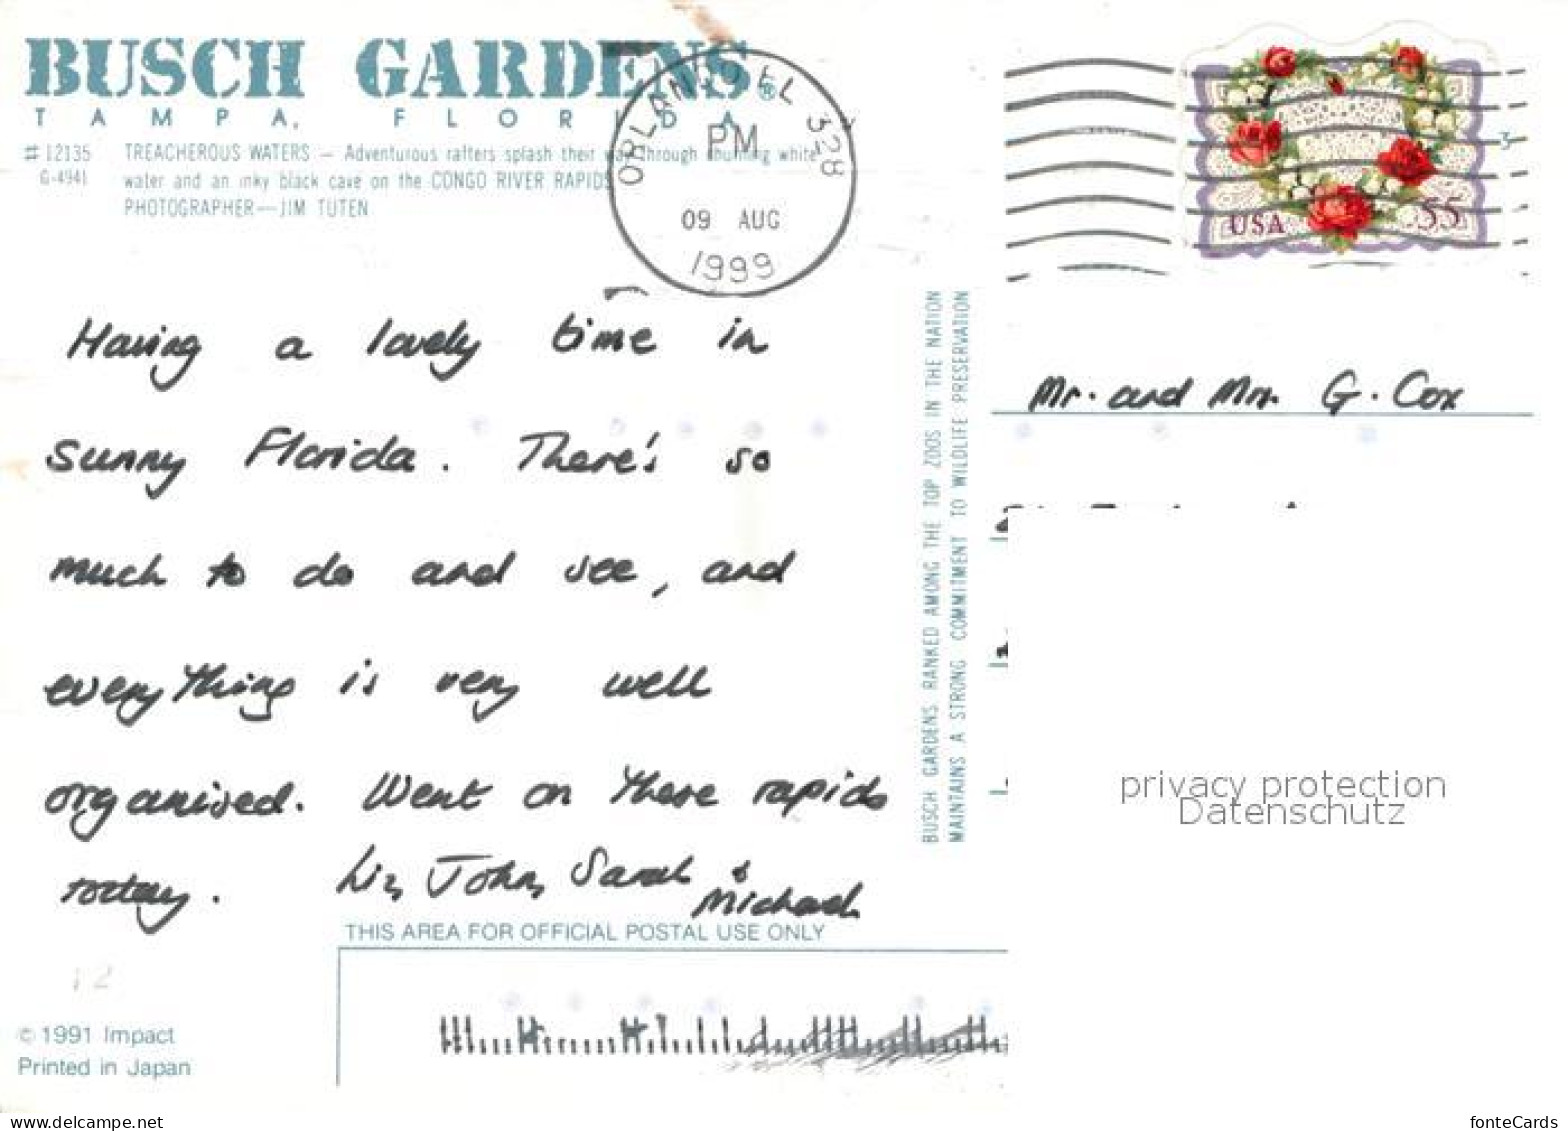 BUSCH GARDENS®
TAMPA, FLORIDA
# 12135 TREACHEROUS WATERS — Adventurous rafters splash their way through churning white
G-4941 water and an inky black cave on the CONGO RIVER RAPIDS
PHOTOGRAPHER—JIM TUTEN
ORLANDO FL 328
PM
09 AUG
1999
USA 55
Having a lovely time in
sunny Florida. There's so
much to do and see, and
everything is very well
organised. Went on these rapids
today. Liz, John, Sarah &
Michael
BUSCH GARDENS RANKED AMONG THE TOP ZOOS IN THE NATION
MAINTAINS A STRONG COMMITMENT TO WILDLIFE PRESERVATION
Mr. and Mrs. G. Cox
privacy protection
Datenschutz
THIS AREA FOR OFFICIAL POSTAL USE ONLY
© 1991 Impact
Printed in Japan
www.delcampe.net
fonteCards